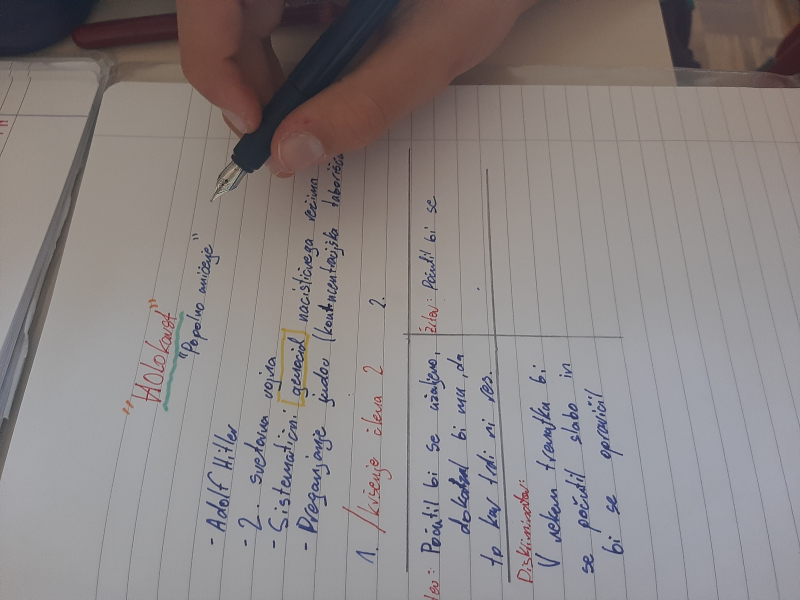 "Holokavst"
"Popolno uničenje"
- Adolf Hitler
- 2. svetovna vojna
- Sistematični genocid nacističnega režima
- Preganjanje judov (koncentracijska taborišča
1. /kršenje člena 2
2.
Počutil bi se užaljeno,
dokazal bi mu, da
to kar trdi ni res.
Žrtev: Počutil bi se
Diskriminator:
V nekem trenutku bi
se počutil slabo in
bi se opravičil